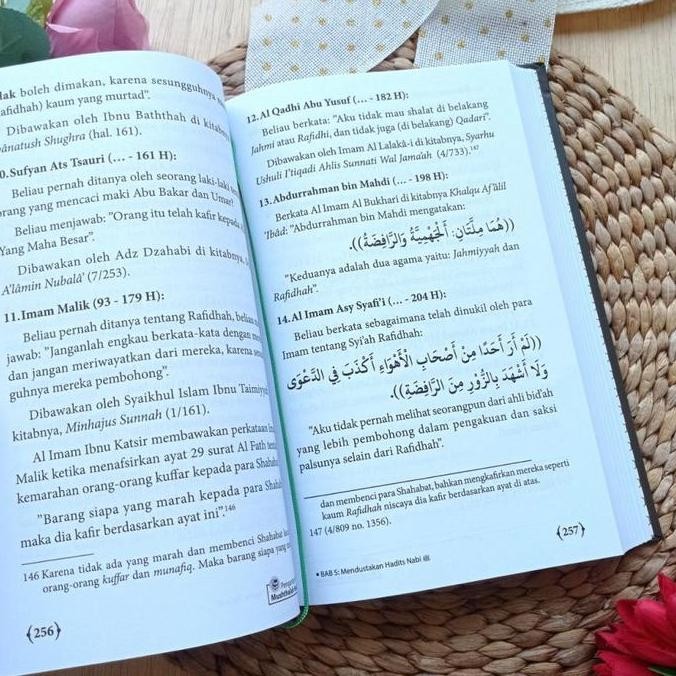 lak boleh dimakan, karena sesungguhnya
afidhah) kaum yang murtad".
Dibawakan oleh Ibnu Baththah di kitabnya
ânatush Shughra (hal. 161).
0. Sufyan Ats Tsauri (... - 161 H):
Beliau pernah ditanya oleh seorang laki-laki
orang yang mencaci maki Abu Bakar dan Umar?
Beliau menjawab: "Orang itu telah kafir kepada
Yang Maha Besar".
Dibawakan oleh Adz Dzahabi di kitabnya,
A'lâmin Nubalâ' (7/253).
11. Imam Malik (93 - 179 H):
Beliau pernah ditanya tentang Rafidhah, beliau
jawab: "Janganlah engkau berkata-kata dengan
dan jangan meriwayatkan dari mereka, karena
guhnya mereka pembohong".
Dibawakan oleh Syaikhul Islam Ibnu Taimiyyah
kitabnya, Minhajus Sunnah (1/161).
Al Imam Ibnu Katsir membawakan perkataan
Malik ketika menafsirkan ayat 29 surat Al Fath
kemarahan orang-orang kuffar kepada para
"Barang siapa yang marah kepada para
maka dia kafir berdasarkan ayat ini".146
146 Karena tidak ada yang marah dan membenci Shahabat
orang-orang kuffar dan munafiq. Maka barang siapa yang
{256}
12. Al Qadhi Abu Yusuf (... - 182 H):
Beliau berkata: "Aku tidak mau shalat di belakang
Jahmi atau Rafidhi, dan tidak juga (di belakang) Qadari".
Dibawakan oleh Imam Al Lalakâ-i di kitabnya, Syarhu
Ushuli I'tiqadi Ahlis Sunnati Wal Jama'ah (4/733).147
13. Abdurrahman bin Mahdi (... - 198 H):
Berkata Al Imam Al Bukhari di kitabnya Khalqu Af'âlil
'Ibâd: "Abdurrahman bin Mahdi mengatakan:
((هُمَا مِلَّتَانِ: اَلْجَهْمِيَّةُ وَالرَّافِضَةُ)).
"Keduanya adalah dua agama yaitu: Jahmiyyah dan
Rafidhah".
14. Al Imam Asy Syafi'i (... - 204 H):
Beliau berkata sebagaimana telah dinukil oleh para
Imam tentang Syi'ah Rafidhah:
((لَمْ أَرَ أَحَدًا مِنْ أَصْحَابِ الْأَهْوَاءِ أَكْذَبَ فِي الدَّعْوَى
وَلَا أَشْهَدَ بِالزُّوْرِ مِنَ الرَّافِضَةِ)).
"Aku tidak pernah melihat seorangpun dari ahli bid'ah
yang lebih pembohong dalam pengakuan dan saksi
palsunya selain dari Rafidhah".
dan membenci para Shahabat, bahkan mengkafirkan mereka seperti
kaum Rafidhah niscaya dia kafir berdasarkan ayat di atas.
147 (4/809 no. 1356).
{257}
• BAB 5: Mendustakan Hadits Nabi ﷺ